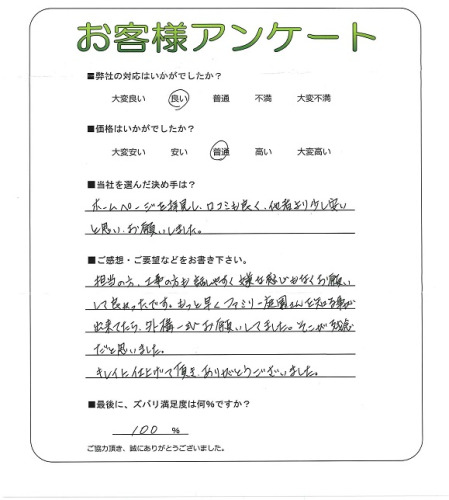 お客様アンケート
■弊社の対応はいかがでしたか？
大変良い 良い 普通 不満 大変不満
■価格はいかがでしたか？
大変安い 安い 普通 高い 大変高い
■当社を選んだ決め手は？
ホームページを拝見し、口コミも良く、他者より少し安い
と思い、お願いしました。
■ご感想・ご要望などをお書き下さい。
担当の方、工事の方も話しやすく嫌な感じもなくお願い
して良かったです。もっと早くファミリー庭園さんを知る事が
出来てたら、外構一式お願いしてました。そこが残念
だと思いました。
キレイに仕上げて頂き、ありがとうございました。
■最後に、ズバリ満足度は何%ですか？
100 %
ご協力頂き、誠にありがとうございました。